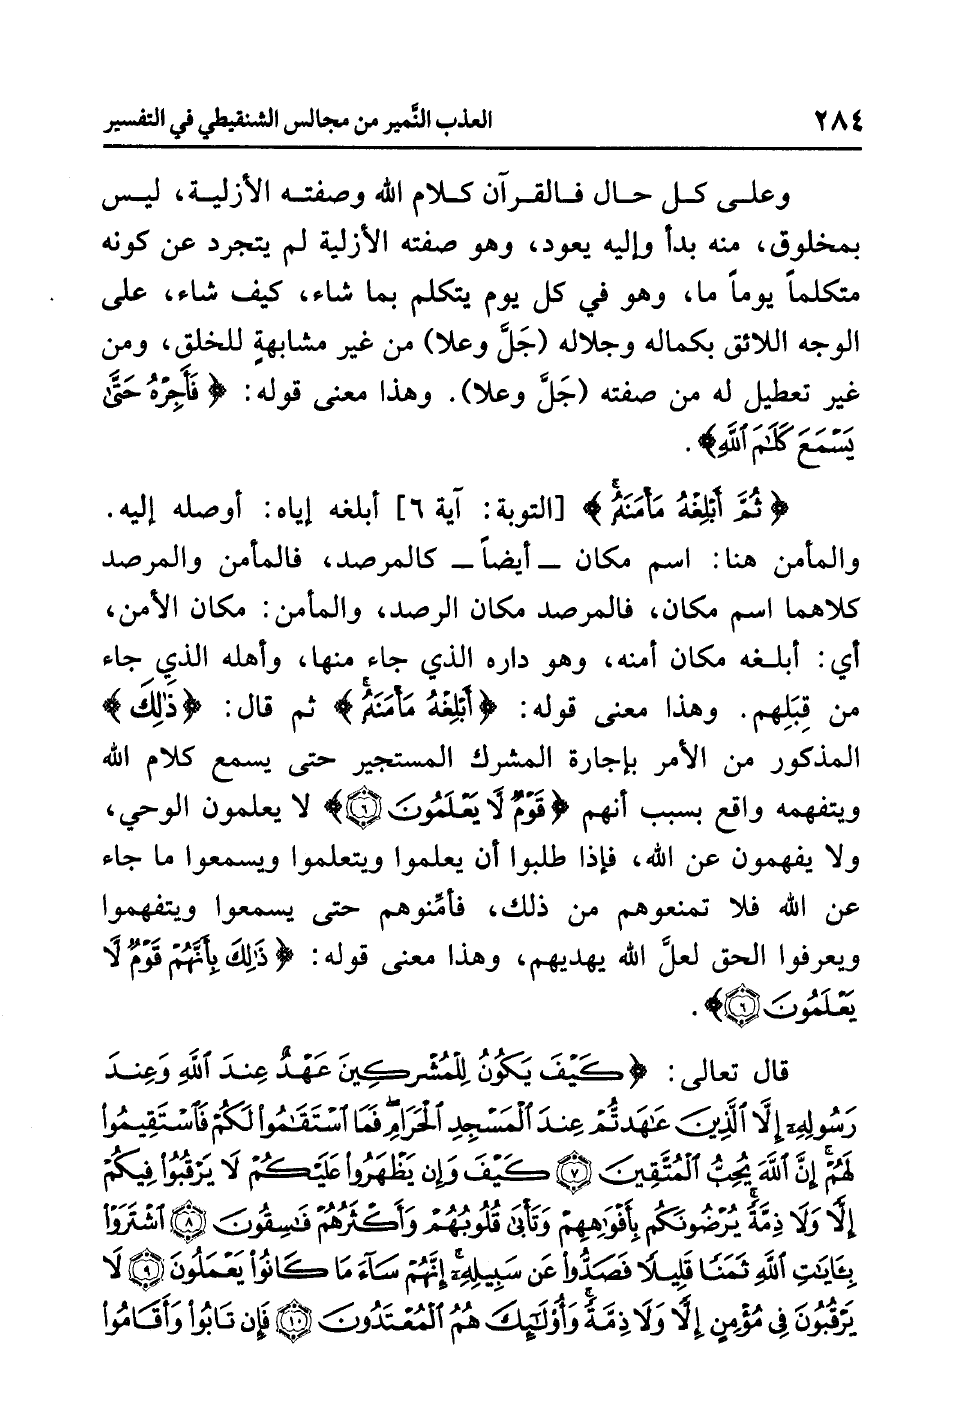 ٢٨٤ العذب النَّمير من مجالس الشنقيطي في التفسير
وعلى كل حال فالقرآن كلام الله وصفته الأزلية، ليس
بمخلوق، منه بدأ وإليه يعود، وهو صفته الأزلية لم يتجرد عن كونه
متكلماً يوماً ما، وهو في كل يوم يتكلم بما شاء، كيف شاء، على
الوجه اللائق بكماله وجلاله (جَلَّ وعلا) من غير مشابهةٍ للخلق، ومن
غير تعطيل له من صفته (جَلَّ وعلا). وهذا معنى قوله: ﴿فَأَجِرْهُ حَتَّىٰ
يَسْمَعَ كَلَٰمَ ٱللَّهِ﴾.
﴿ثُمَّ أَبْلِغْهُ مَأْمَنَهُۥۚ﴾ [التوبة: آية ٦] أبلغه إياه: أوصله إليه.
والمأمن هنا: اسم مكان ــ أيضاً ــ كالمرصد، فالمأمن والمرصد
كلاهما اسم مكان، فالمرصد مكان الرصد، والمأمن: مكان الأمن،
أي: أبلغه مكان أمنه، وهو داره الذي جاء منها، وأهله الذي جاء
من قِبَلِهم. وهذا معنى قوله: ﴿أَبْلِغْهُ مَأْمَنَهُۥۚ﴾ ثم قال: ﴿ذَٰلِكَ﴾
المذكور من الأمر بإجارة المشرك المستجير حتى يسمع كلام الله
ويتفهمه واقع بسبب أنهم ﴿قَوْمٌ لَّا يَعْلَمُونَ ٦﴾ لا يعلمون الوحي،
ولا يفهمون عن الله، فإذا طلبوا أن يعلموا ويتعلموا ويسمعوا ما جاء
عن الله فلا تمنعوهم من ذلك، فأمِّنوهم حتى يسمعوا ويتفهموا
ويعرفوا الحق لعلَّ الله يهديهم، وهذا معنى قوله: ﴿ذَٰلِكَ بِأَنَّهُمْ قَوْمٌ لَّا
يَعْلَمُونَ ٦﴾.
قال تعالى: ﴿كَيْفَ يَكُونُ لِلْمُشْرِكِينَ عَهْدٌ عِندَ ٱللَّهِ وَعِندَ
رَسُولِهِۦٓ إِلَّا ٱلَّذِينَ عَٰهَدتُّمْ عِندَ ٱلْمَسْجِدِ ٱلْحَرَامِۖ فَمَا ٱسْتَقَٰمُوا۟ لَكُمْ فَٱسْتَقِيمُوا۟
لَهُمْۚ إِنَّ ٱللَّهَ يُحِبُّ ٱلْمُتَّقِينَ ٧ كَيْفَ وَإِن يَظْهَرُوا۟ عَلَيْكُمْ لَا يَرْقُبُوا۟ فِيكُمْ
إِلًّا وَلَا ذِمَّةًۚ يُرْضُونَكُم بِأَفْوَٰهِهِمْ وَتَأْبَىٰ قُلُوبُهُمْ وَأَكْثَرُهُمْ فَٰسِقُونَ ٨ ٱشْتَرَوْا۟
بِـَٔايَٰتِ ٱللَّهِ ثَمَنًا قَلِيلًا فَصَدُّوا۟ عَن سَبِيلِهِۦٓۚ إِنَّهُمْ سَآءَ مَا كَانُوا۟ يَعْمَلُونَ ٩ لَا
يَرْقُبُونَ فِى مُؤْمِنٍ إِلًّا وَلَا ذِمَّةًۚ وَأُو۟لَٰٓئِكَ هُمُ ٱلْمُعْتَدُونَ ١٠ فَإِن تَابُوا۟ وَأَقَامُوا۟